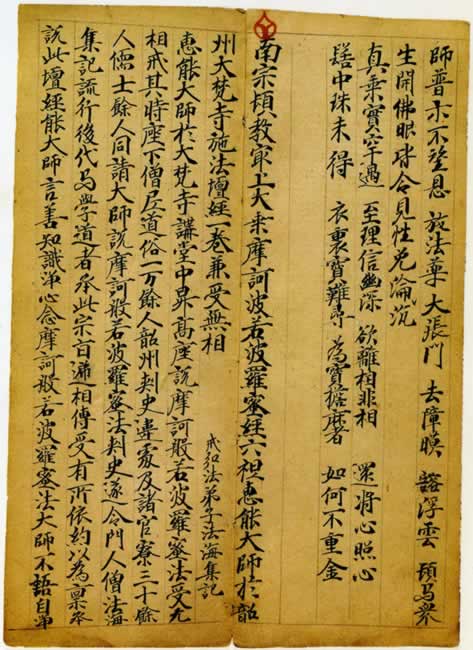 師普示不望恩 施法藥 大張門 去障瞙 豁浮雲 頓与衆
生開佛眼 皆令見性免淪沉
真乘實罕遇 至理信幽深 欲離相非相 還將心照心
髻中珠未得 衣裏寶難尋 為寶擔麻者 如何不重金
南宗頓教最上大乘摩訶波若波羅蜜經六祖惠能大師於韶
州大梵寺施法壇經一卷兼受無相
戒弘法弟子法海集記
惠能大師於大梵寺講堂中昇高座說摩訶般若波羅蜜法受无
相戒其時座下僧尼道俗一万餘人韶州刺史違處及諸官寮三十餘
人儒士餘人同請大師說摩訶般若波羅蜜法刺史遂令門人僧法海
集記流行後代与學道者承此宗旨遞相傳受有所依約以為稟承
說此壇經能大師言善知識淨心念摩訶般若波羅蜜法大師不語自淨